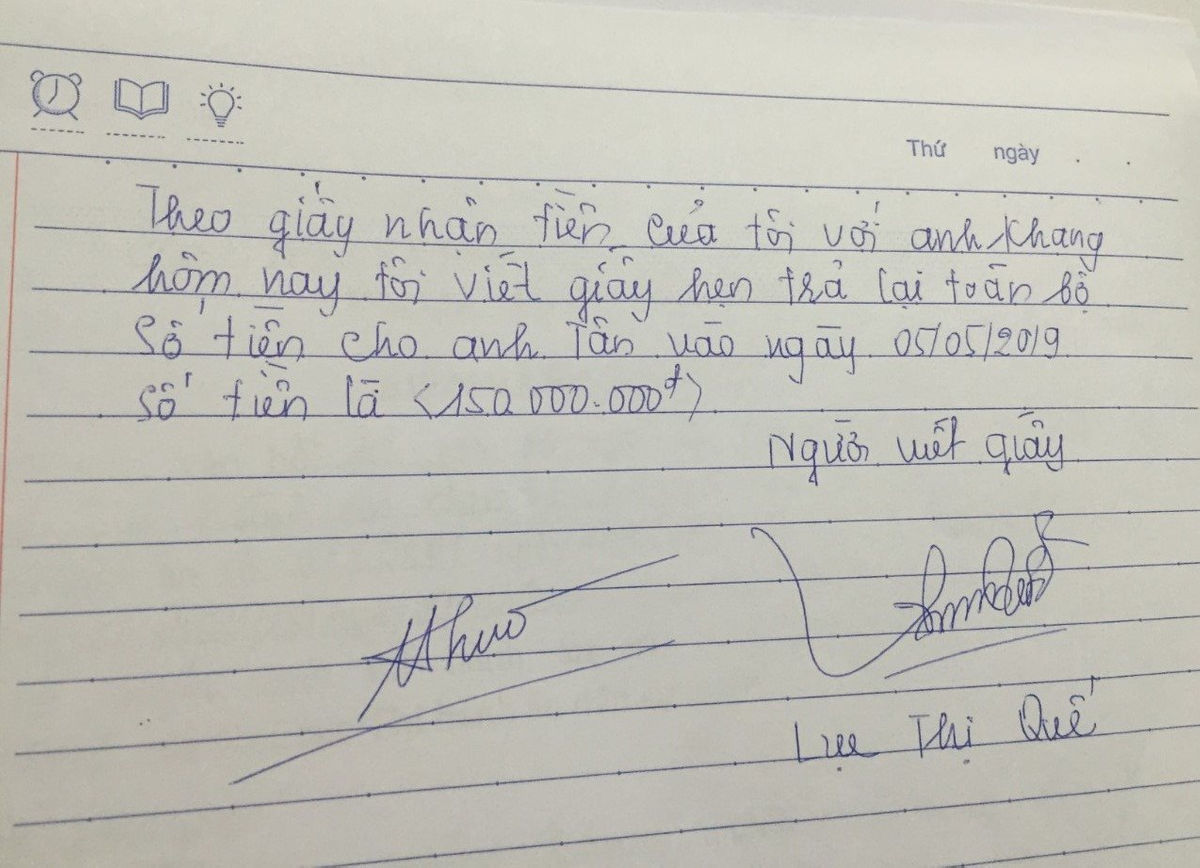 Thứ ngày . .
Theo giấy nhận tiền của tôi với anh Khang
hôm nay tôi viết giấy hẹn trả lại toàn bộ
số tiền cho anh Tân vào ngày 05/05/2019
số tiền là <150.000.000đ>
Người viết giấy
Lục Thị Quế